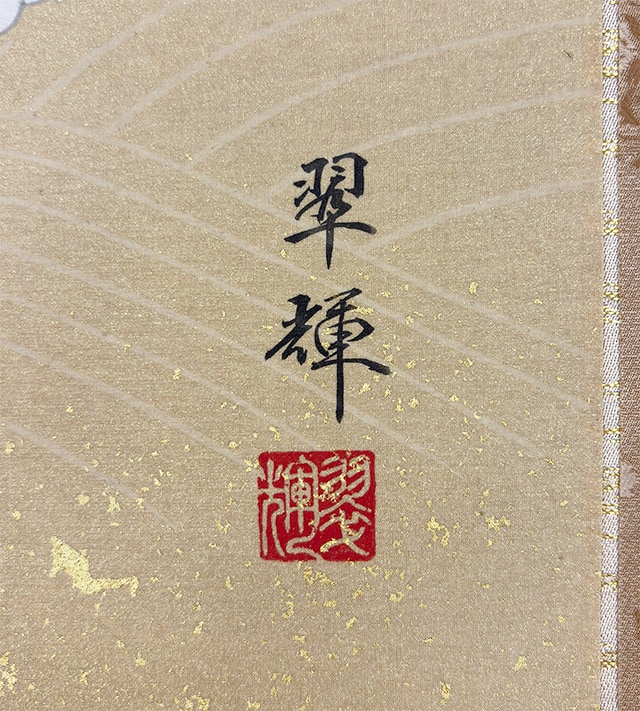 翠輝
翠輝